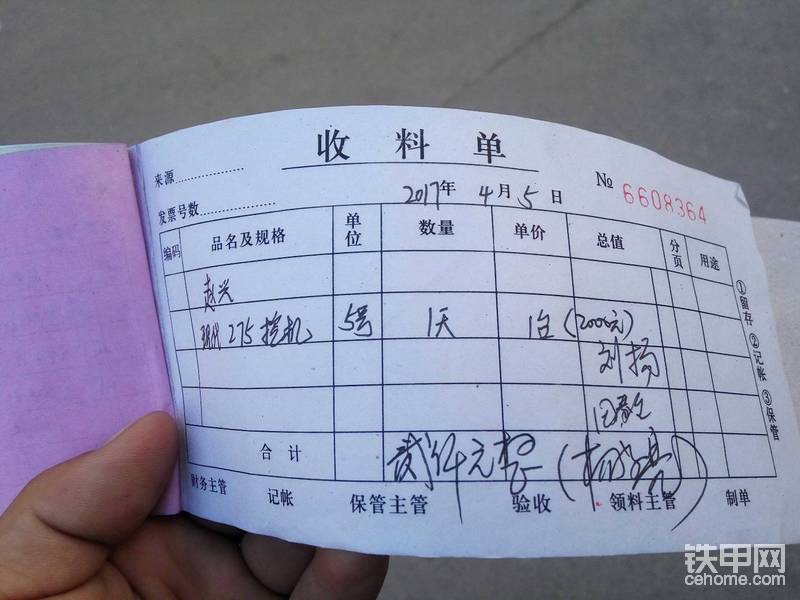 收料单
来源
№ 6608364
2017年4月5日
发票号数
编码 品名及规格 单位 数量 单价 总值 分页 用途
赵兴
现代275挖机 5号 1天 1台 (2000元)
刘扬
合计 贰仟元整
财务主管 记帐 保管主管 验收 领料主管 制单
①留存 ②记帐 ③保管
铁甲网
cehome.com